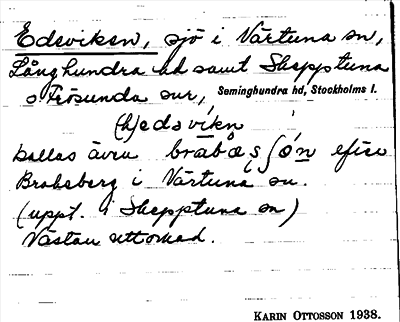 Edsviken, sjö i Närtuna sn,
Långhundra hd samt Skepptuna
o Frösunda snr, Seminghundra hd, Stockholms l.
(h)edsvikn
kallas även efter
Broksberg i Närtuna sn.
(uppt. i Skepptuna sn)
Nästan uttorkad.
KARIN OTTOSSON 1938.